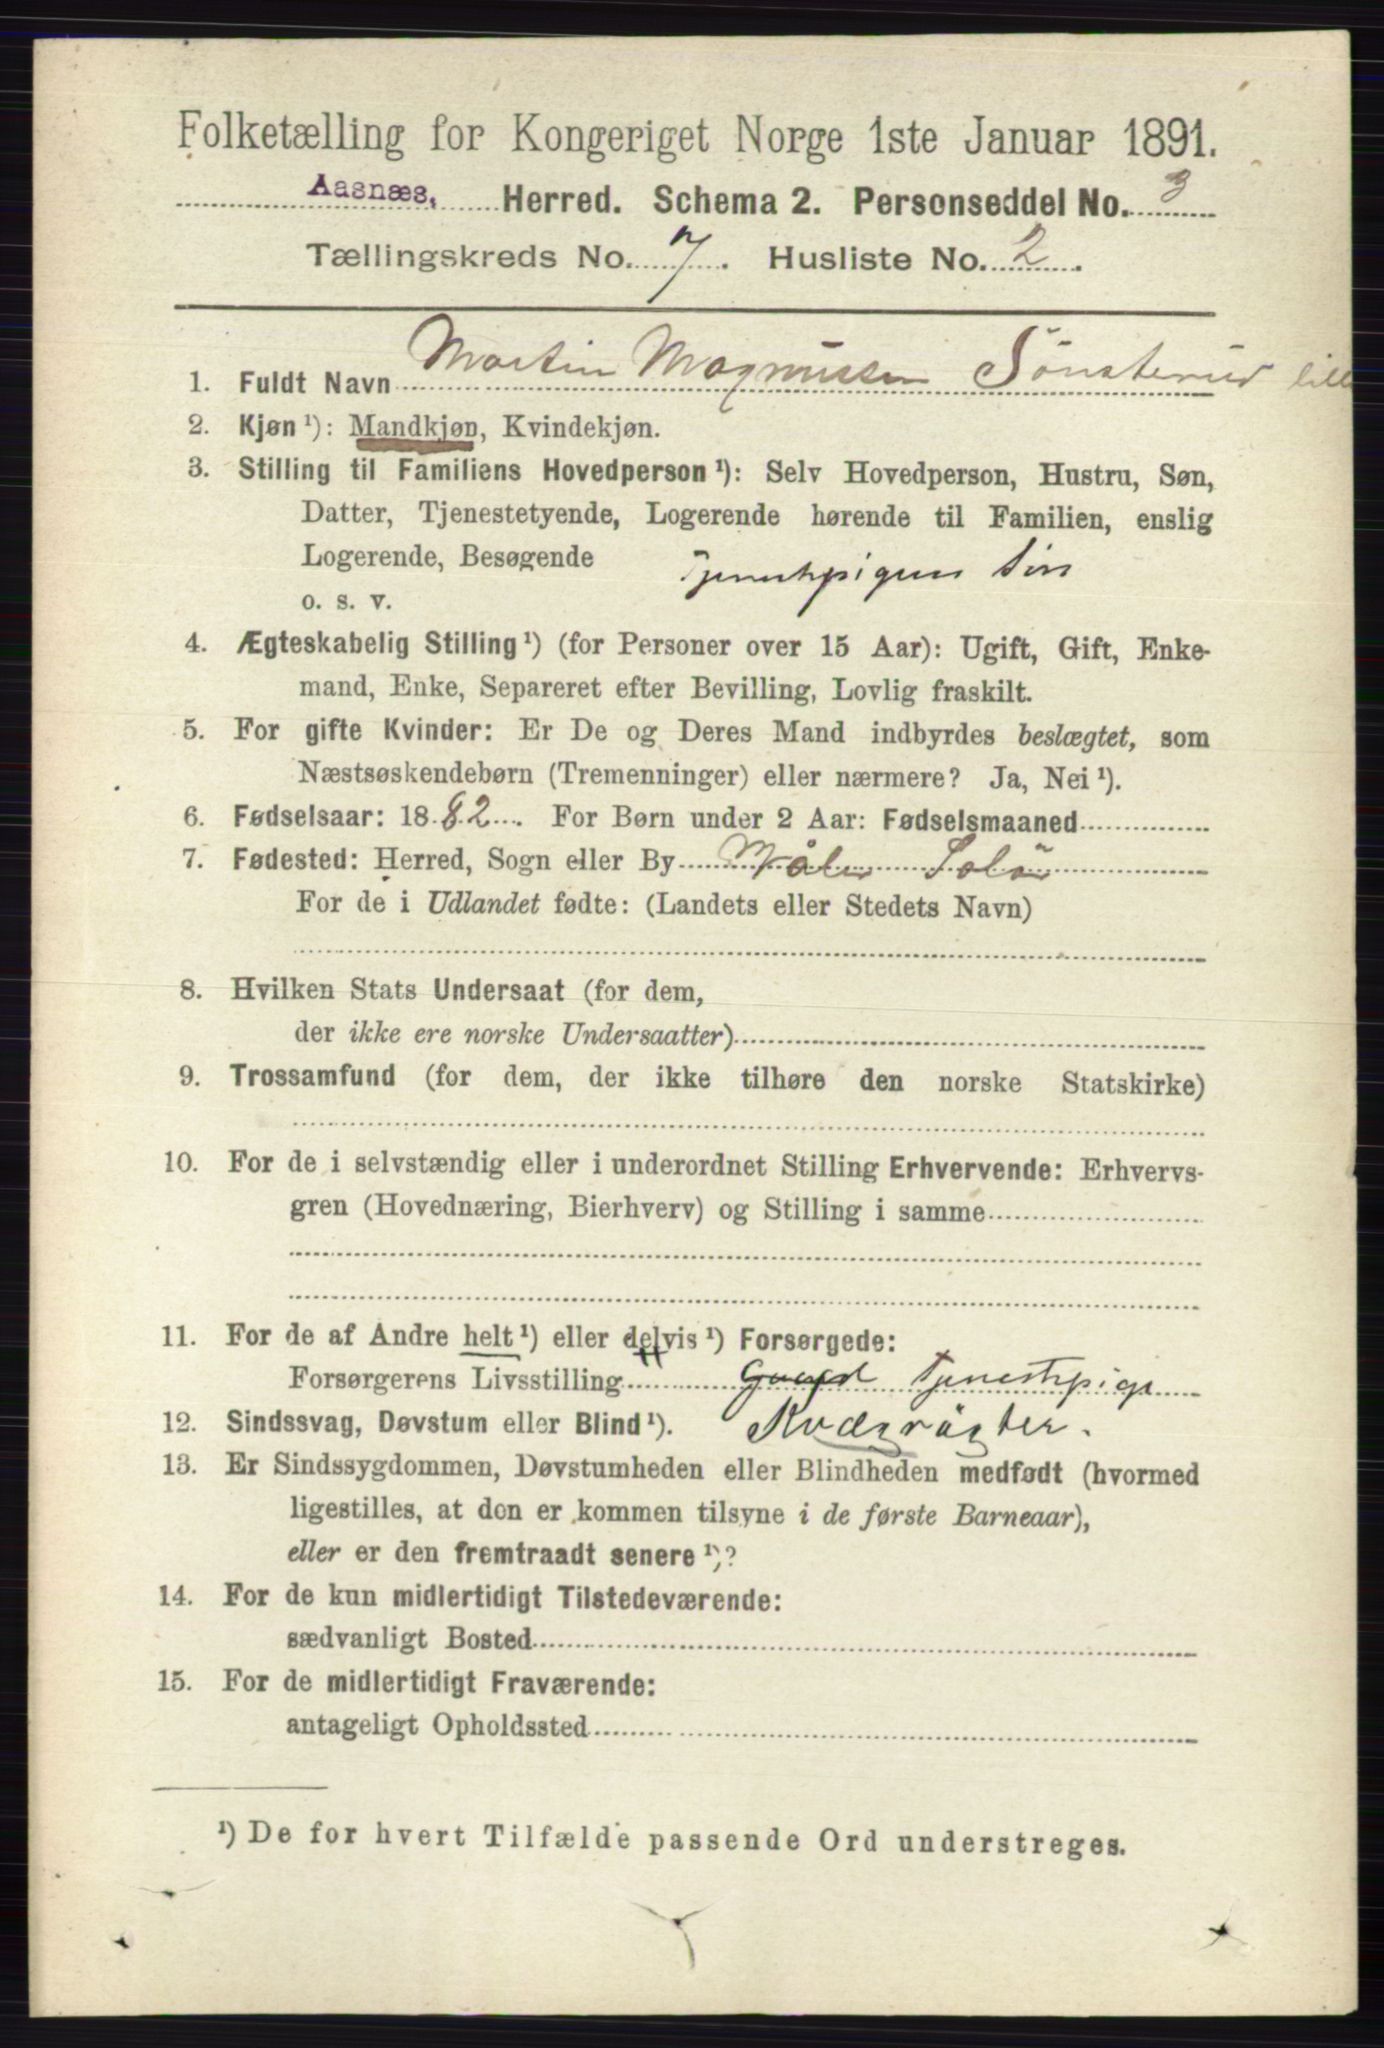 Folketælling for Kongeriget Norge 1ste Januar 1891.
Aasnæs. Herred. Schema 2. Personseddel No. 3
Tællingskreds No. 7. Husliste No. 2.
1. Fuldt Navn Martin Magnussen Sönsterud lille
2. Kjøn ¹): Mandkjøn, Kvindekjøn.
3. Stilling til Familiens Hovedperson ¹): Selv Hovedperson, Hustru, Søn,
Datter, Tjenestetyende, Logerende hørende til Familien, enslig
Logerende, Besøgende Tjenestepigens Sön
o. s. v.
4. Ægteskabelig Stilling ¹) (for Personer over 15 Aar): Ugift, Gift, Enke-
mand, Enke, Separeret efter Bevilling, Lovlig fraskilt.
5. For gifte Kvinder: Er De og Deres Mand indbyrdes beslægtet, som
Næstsøskendebørn (Tremenninger) eller nærmere? Ja, Nei ¹).
6. Fødselsaar: 1882. For Børn under 2 Aar: Fødselsmaaned
7. Fødested: Herred, Sogn eller By Våler Solör
For de i Udlandet fødte: (Landets eller Stedets Navn)
8. Hvilken Stats Undersaat (for dem,
der ikke ere norske Undersaatter)
9. Trossamfund (for dem, der ikke tilhøre den norske Statskirke)
10. For de i selvstændig eller i underordnet Stilling Erhvervende: Erhvervs-
gren (Hovednæring, Bierhverv) og Stilling i samme
11. For de af Andre helt ¹) eller delvis ¹) Forsørgede:
Forsørgerens Livsstilling Tjenestepige
12. Sindssvag, Døvstum eller Blind ¹). Kvægrögter.
13. Er Sindssygdommen, Døvstumheden eller Blindheden medfødt (hvormed
ligestilles, at den er kommen tilsyne i de første Barneaar),
eller er den fremtraadt senere ¹)?
14. For de kun midlertidigt Tilstedeværende:
sædvanligt Bosted
15. For de midlertidigt Fraværende:
antageligt Opholdssted
¹) De for hvert Tilfælde passende Ord understreges.